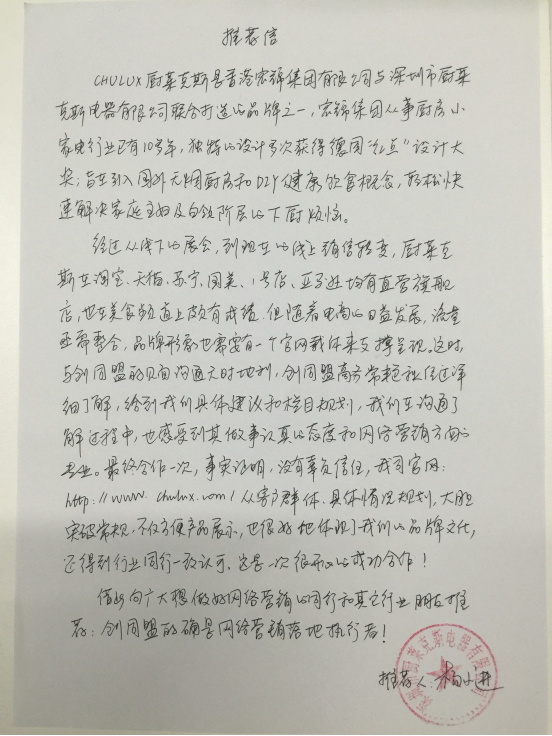 推荐信
CHULUX厨莱克斯是香港宏锦集团有限公司与深圳市厨莱
克斯电器有限公司联合打造的品牌之一,宏锦集团从事厨房小
家电行业已有10多年,独特的设计多次获得德国“红点”设计大
奖;旨在引入国外无烟厨房和DIY健康饮食概念,轻松快
速解决家庭主妇及白领阶层的下厨烦恼。
经过从线下的展会,到现在的线上销售转变,厨莱克
斯在淘宝、天猫、苏宁、国美、1号店、亚马逊均有直营旗舰
店,也在美食频道上颇有成绩.但随着电商的日益发展,流量
亟需整合,品牌形象也需要有一个官网载体来支撑呈现。这时,
与创同盟的见面沟通天时地利,创同盟高
细了解,给到我们具体建议和栏目规划,我们在沟通了
解过程中,也感受到其做事认真的态度和网络营销方面的
专业。最终合作一次,事实证明,没有辜负信任,我司官网:
http://www.chulux.com/从客户群体、具体情况规划,大胆
突破常规,不仅方便产品展示,也很好地体现了我们的品牌文化,
还得到行业同行一致认可、这是一次很开心的成功合作!
借此向广大想做好网络营销的同行和其它行业朋友推
荐:创同盟的确是网络营销落地执行者!
推荐人:杨小进
深圳市厨莱克斯电器有限公司